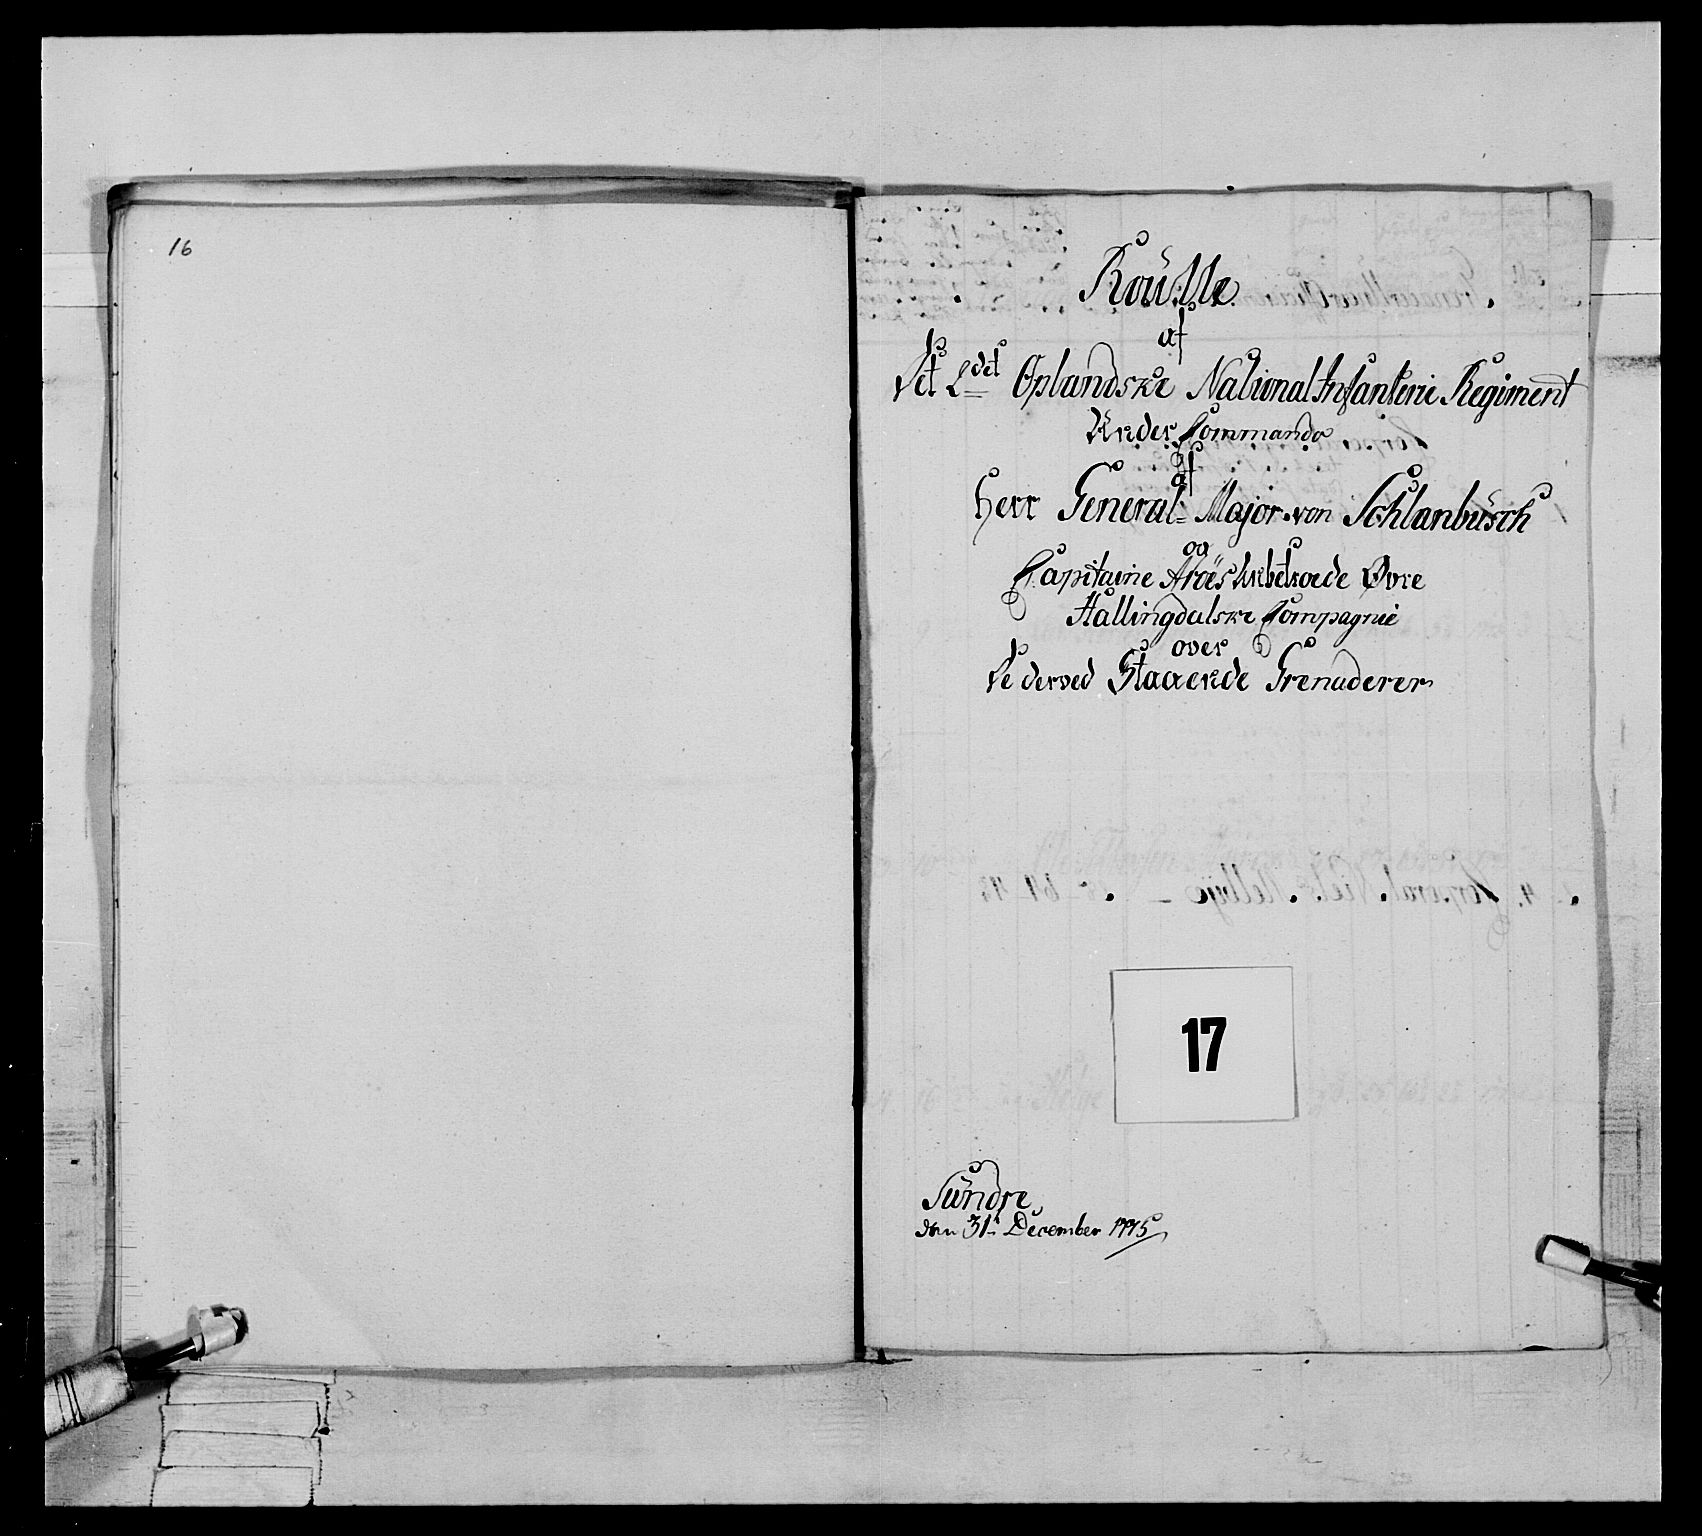 16
Roulle
af
Det 2det Oplandske National Infanterie Regiment
Under Commando
af
Herr General-Major von Schlanbüsch
og
Capitaine Anbetroede Øvre
Hallingdalske Compagnie
over
De derved Staaende Grenaderer
17
Sündre
den 31t December 1775